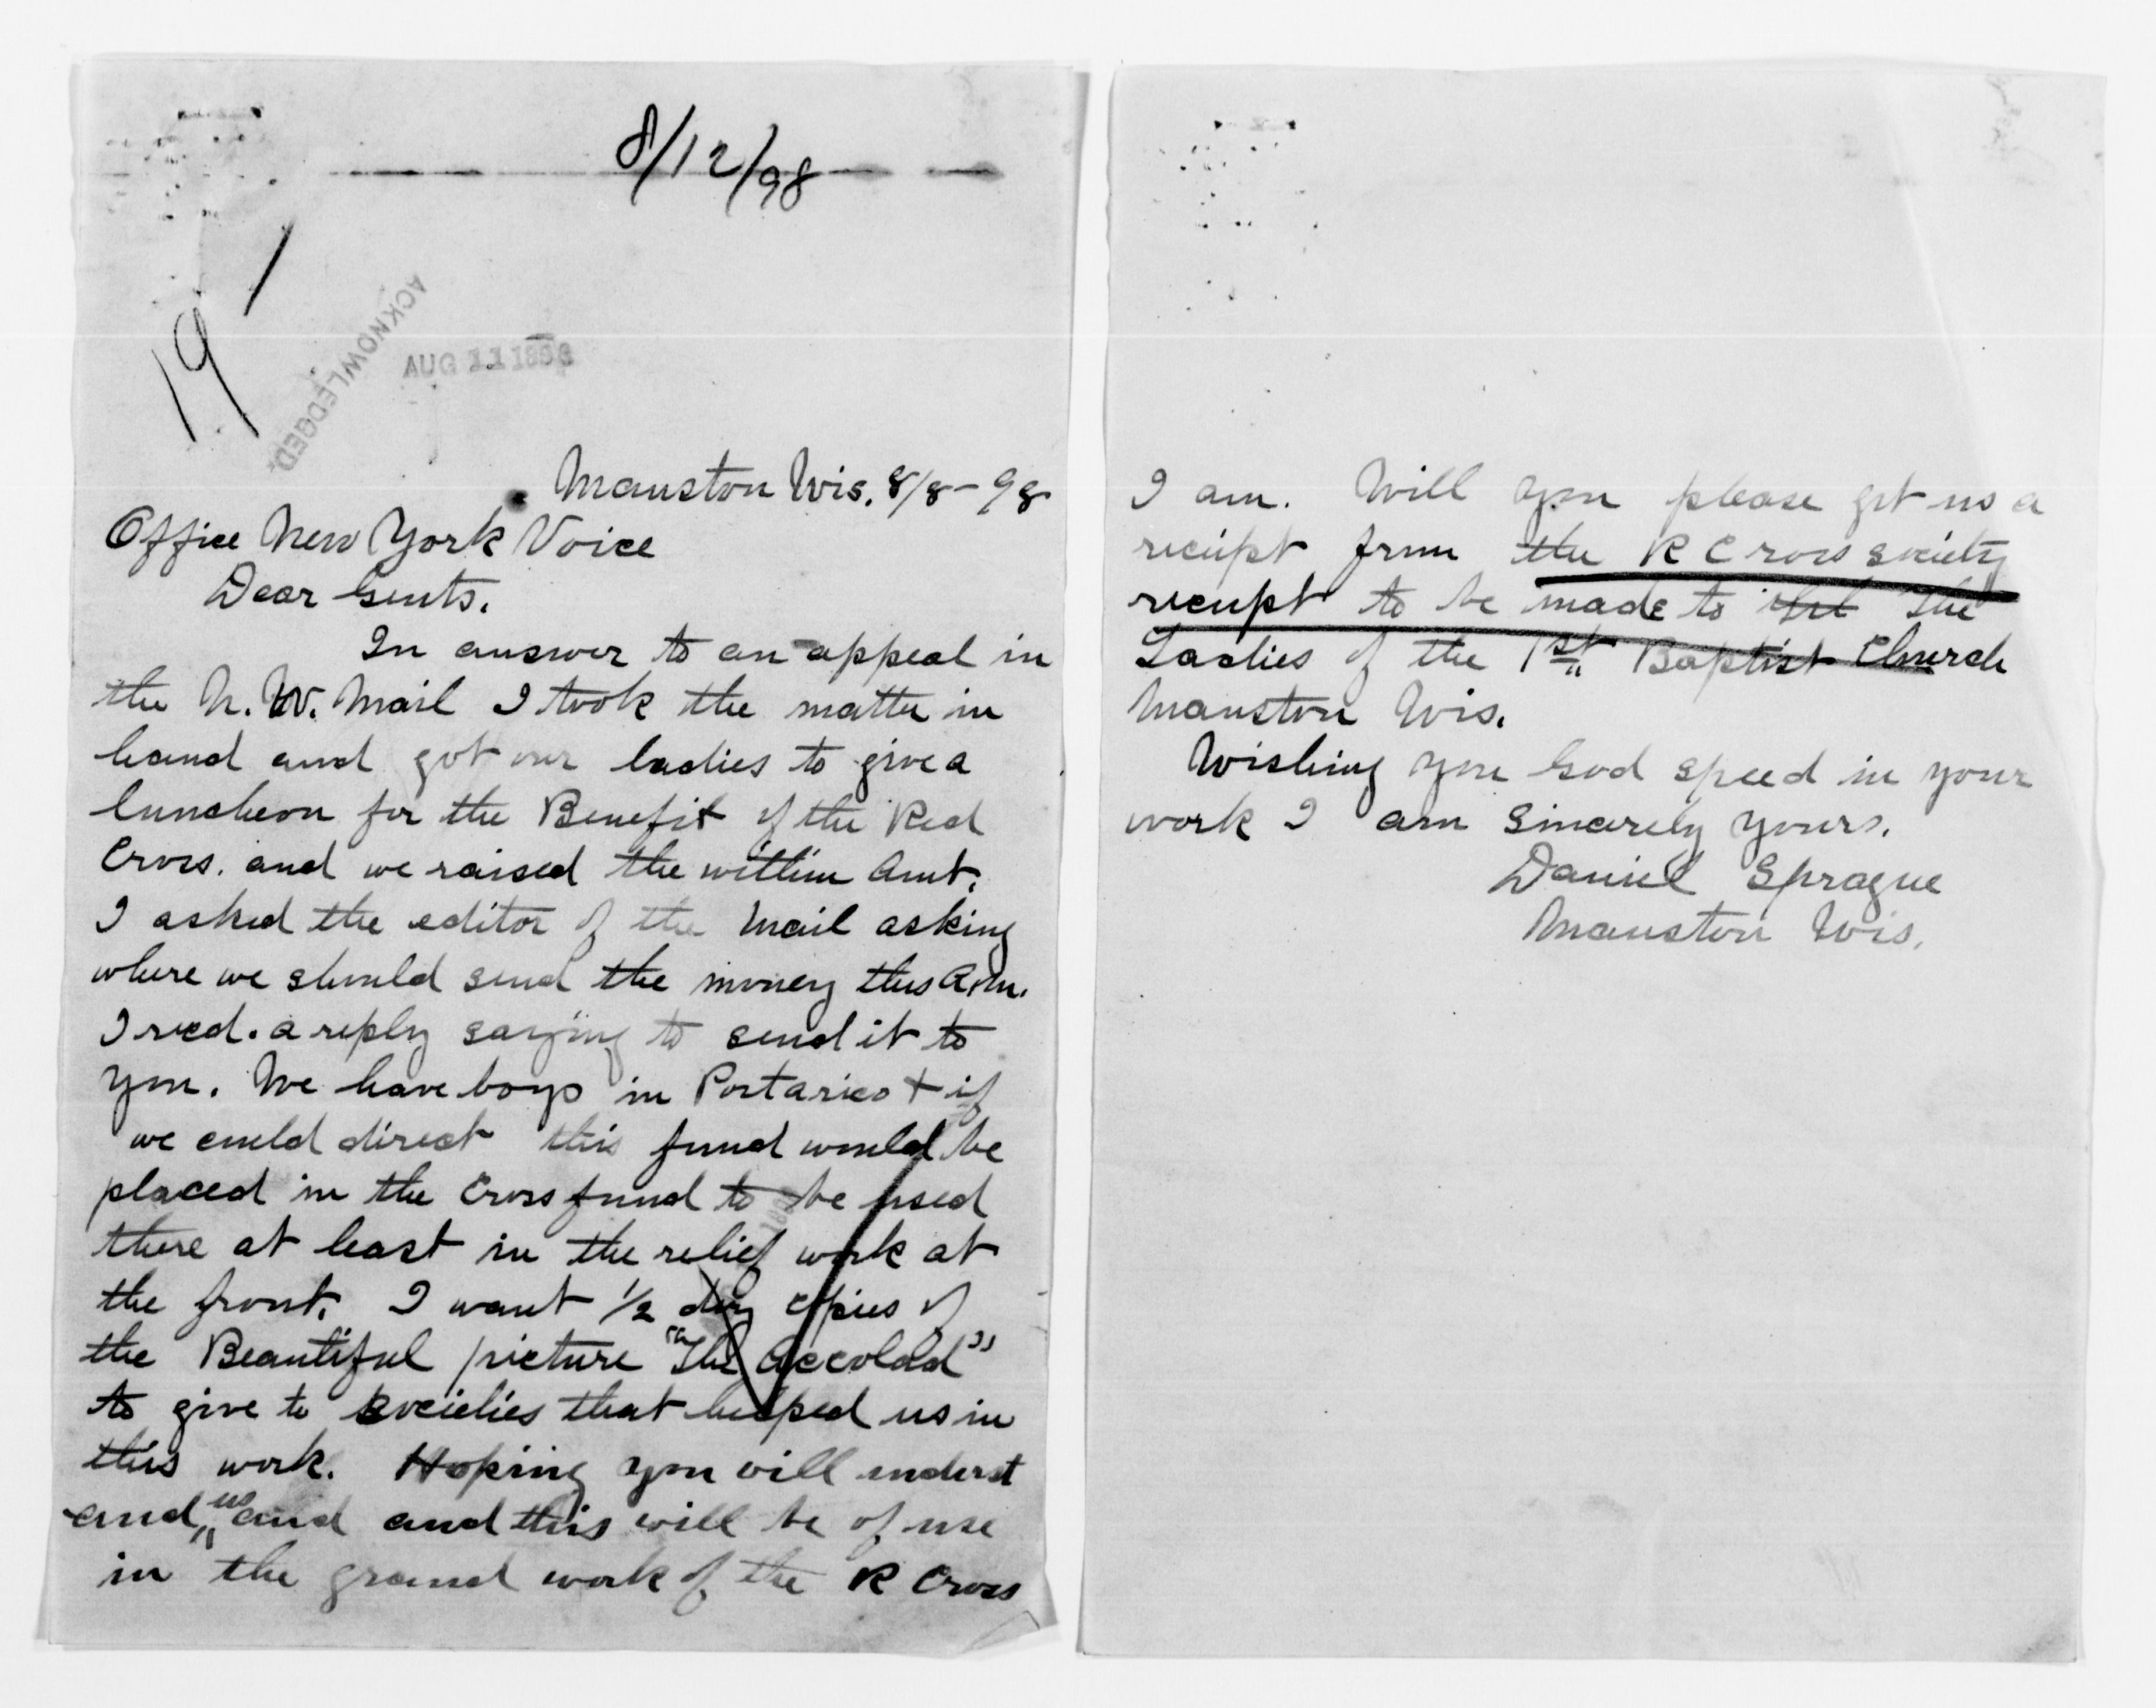 8/12/98
19
ACKNOWLEDGED.
AUG 11 1898
Mauston Wis. 8/8-98
Office New York Voice
Dear Gents.
In answer to an appeal in
the N.W. Mail I took the matter in
hand and got our ladies to give a
luncheon for the Benefit of the Red
Cross. and we raised the within Amt.
I asked the editor of the Mail asking
where we should send the money this A.M.
I recd. a reply saying to send it to
you. We have boys in Portarico + if
we could direct this fund would be
placed in the Cross fund to be used
there at least in the relief work at
the front. I want 1/2 doz copies of
the Beautiful picture "The Accolad"
to give to societies that helped us in
this work. Hoping you will underst
and us and and this will be of use
in the grand work of the R Cross
I am. Will you please get us a
reciept from the R Cross society
reciept to be made to the The
Ladies of the 1st Baptist Church
Mauston Wis.
Wishing you God speed in your
work I am Sincerely Yours.
Daniel Sprague
Mauston Wis.